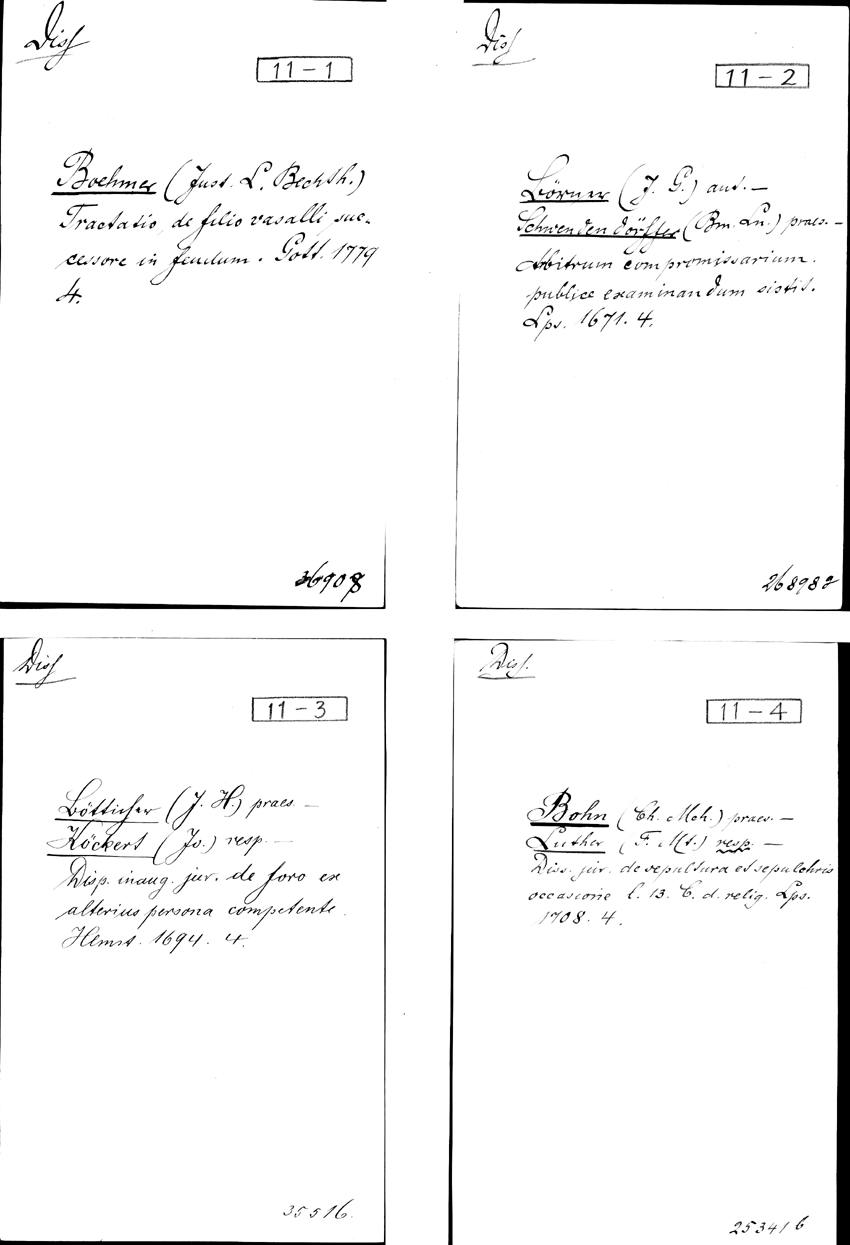 Diss
11-1
Boehmer (Just. L. Bechth.)
Tractatio, de filio vasalli suc-
cessore in feudum. Gott. 1779
4.
36908
Diss
11-2
Börner (J. G.) aut. —
Schwendendörffer (Bm. Ln.) praes. —
Arbitrum compromissarium.
publice examinandum sistit.
Lps. 1671. 4.
268982
Diss
11-3
Bötticher (J. H.) praes —
Köckert (Js.) resp. —
Disp. inaug. jur. de foro ex
alterius persona competente.
Hlmst. 1694. 4.
35516.
Diss.
11-4
Bohn (Ch. Mch.) praes. —
Luther (F. Mt.) resp. —
Diss. jur. de sepultura et sepulchris
occasione l. 13. C. d. relig. Lps.
1708. 4.
253416